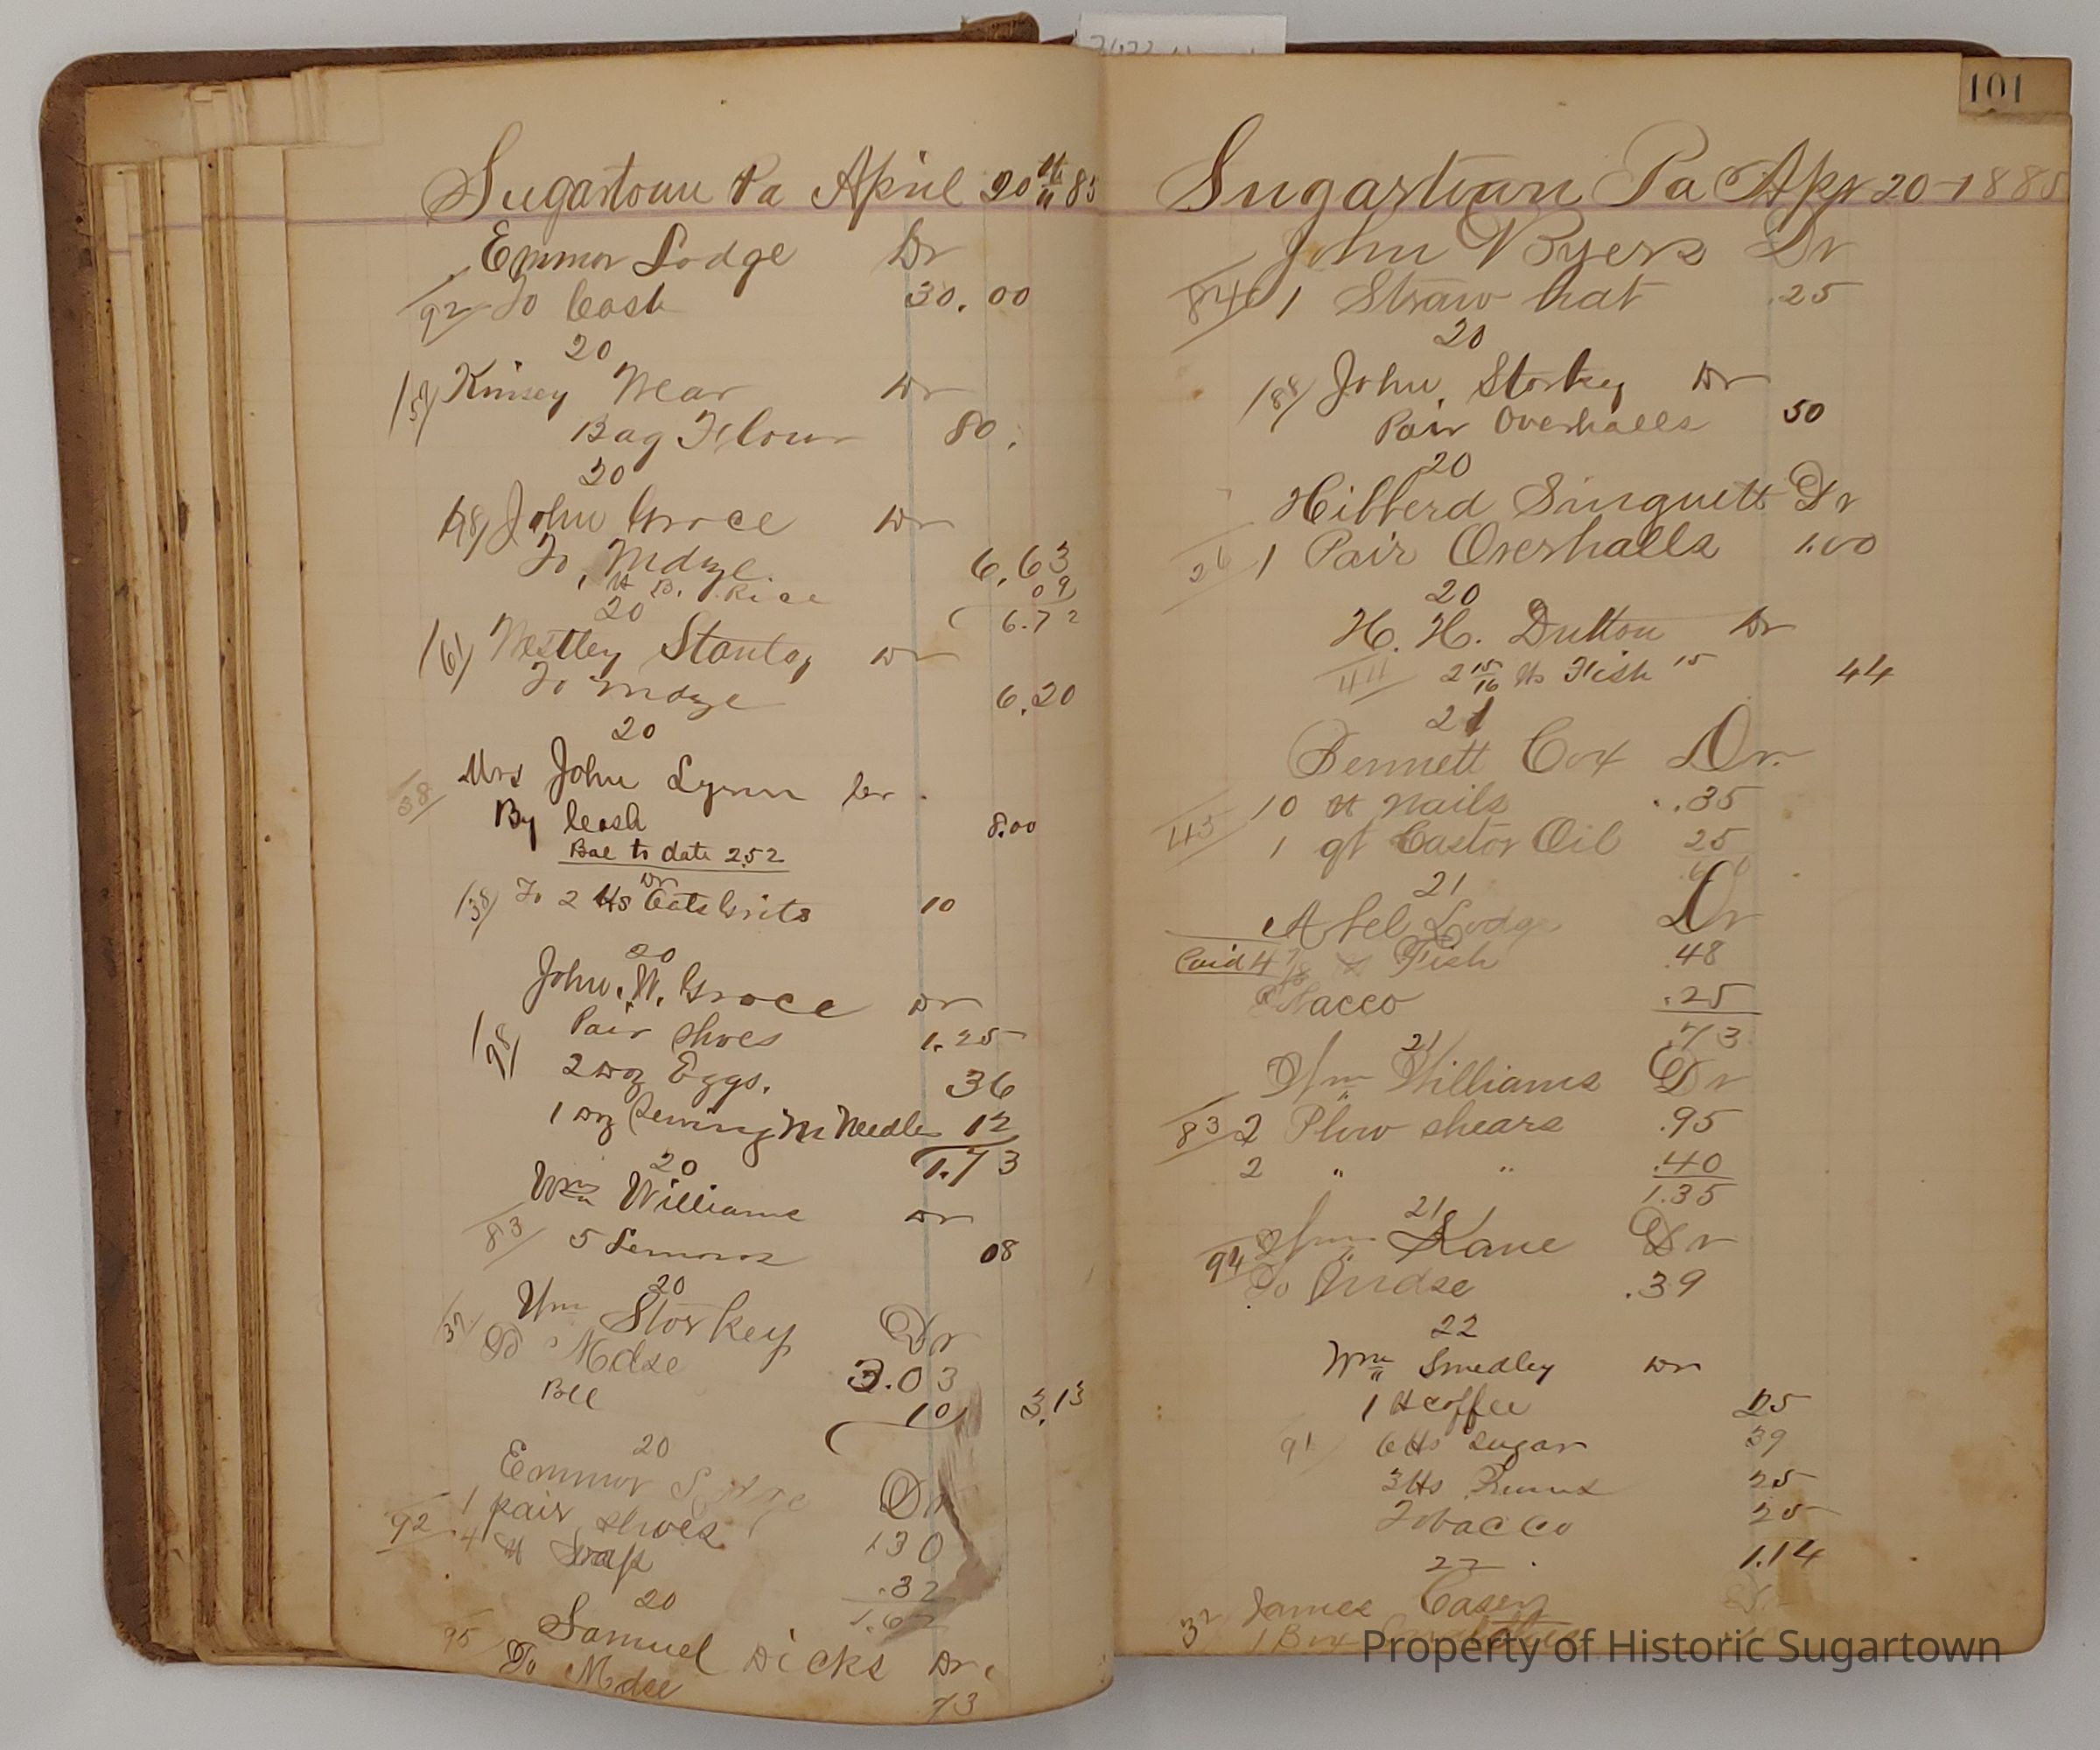 Sugartown Pa April 20th 85
Emmor Lodge Dr
92 To Cash 30.00
20
157 Kinsey Wear Dr
Bag Flour 80
20
198 John Groce Dr
To Mdze. 6.63
1 lb B. Rice 09
6.72
20
161 Westley Stanley Dr
To Mdze 6.20
20
38 Mrs John Lynn Cr
By Cash 8.00
Bal to date 2.52
Dr
138 To 2 lbs Oats Grits 10
20
John. W. Groce Dr
198 Pair Shoes 1.25
2 Doz Eggs. 36
1 Doz Sewing M Needles 12
1.73
20
Wm Williams Dr
83 5 Lemons 08
20
37 Wm Storkey Dr
To Mdse 3.03
10 3.13
20
Emmor Lodge Dr
1 pair shoes 1.30
92 4 lb Soap .32
1.62
20
95 Samuel Dicks Dr.
To Mdse 73
101
Sugartown Pa Apr 20-1885
John Byers Dr
84 1 Straw hat .25
20
188 John Storkey Dr
Pair Overhalls 50
20
Hibberd Singuett Dr
26 1 Pair Overhalls 1.00
20
H. H. Dutton Dr
44 2 15/16 lbs Fish 15 44
21
Bennett Cox Dr.
143 10 lb Nails .35
1 qt Castor Oil 25
.60
21
Abel Lodge Dr
Paid 4 7/8 lb Fish .48
Tobacco .25
.73
21
Wm Williams Dr
83 2 Plow shears .95
2 " " .40
1.35
21
Wm Kane Dr
94 To Mdse .39
22
Wm Smedley Dr
1 lb Coffee 25
91 6 lbs Sugar 39
3 lbs Prunes 25
Tobacco 25
1.14
22
James Casey Dr
32 1 Box
Property of Historic Sugartown